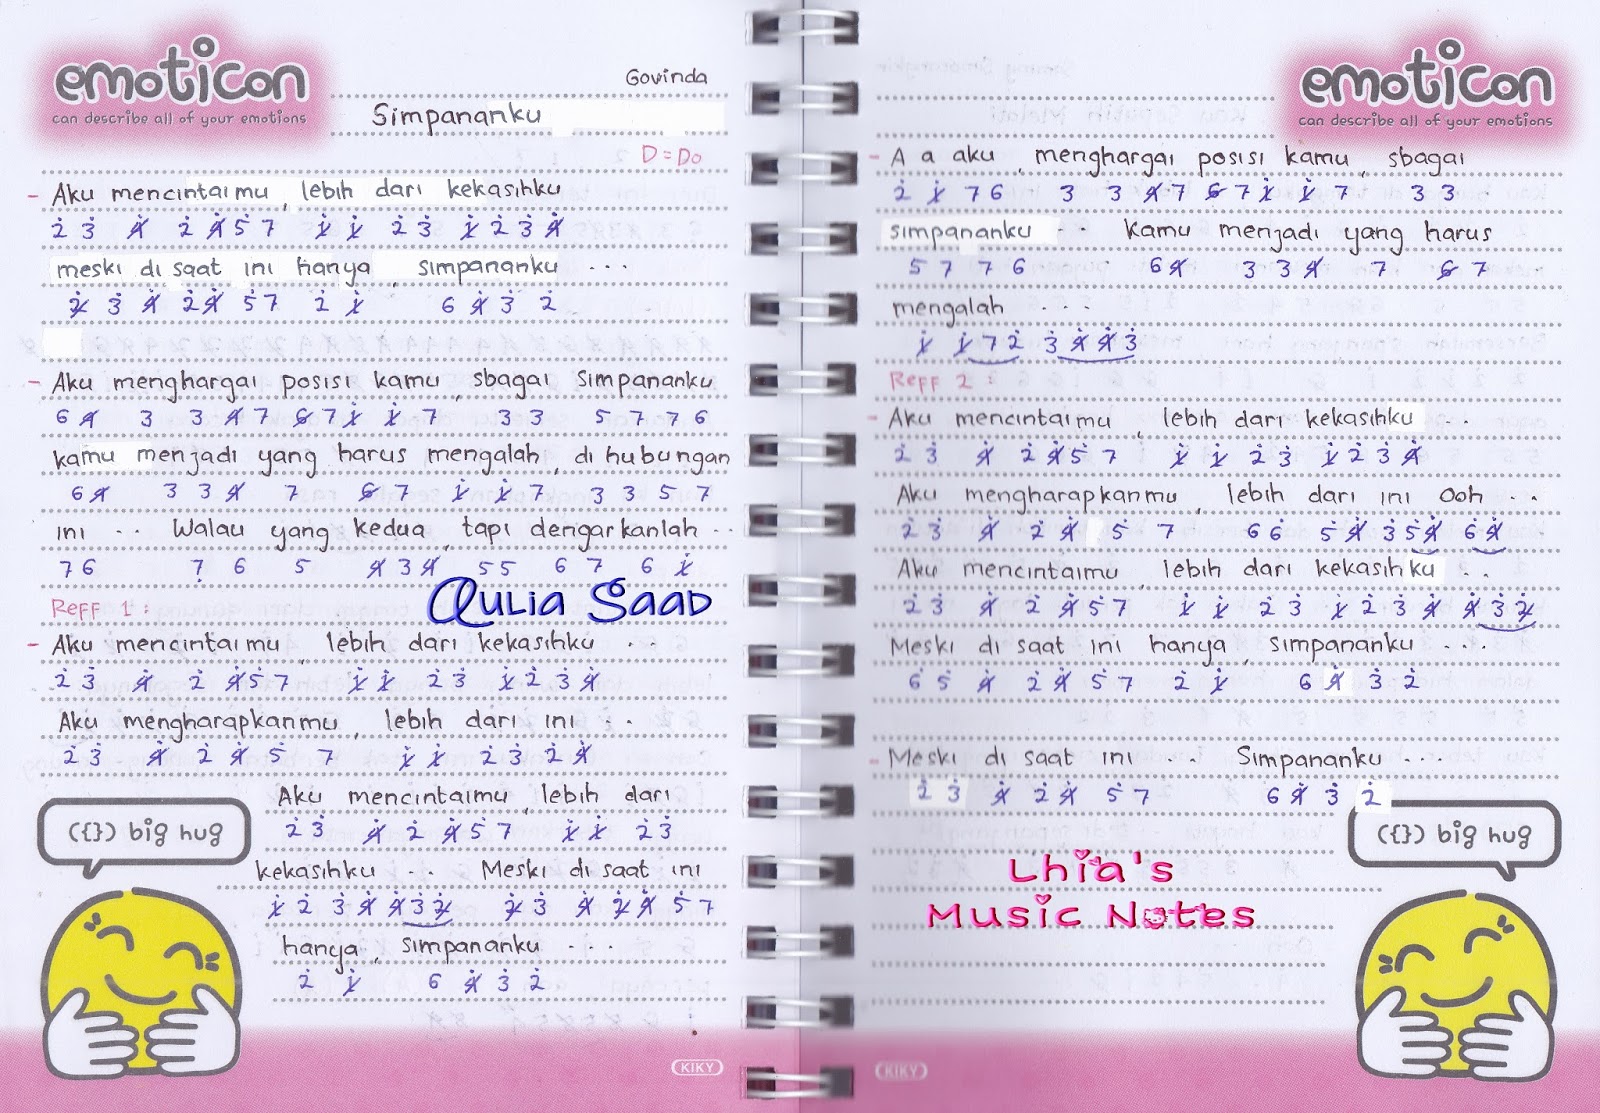 emoticon
can describe all of your emotions
Govinda
Simpananku
D = Do
- Aku mencintaimu, lebih dari kekasihku
2̇ 3̇ 4̸̇ 2̇ 4̸̇ 5̇ 7 1̸̇ 1̸̇ 2̇ 3̇ 1̸̇ 2̇ 3̇ 4̸̇
meski di saat ini hanya, simpananku ...
2̸̇ 3̇ 4̸̇ 2̇ 4̸̇ 5̇ 7 2̇ 1̸̇ 6 4̸̇ 3̇ 2̇
- Aku menghargai posisi kamu, sbagai simpananku
6 4̸ 3 3 4̸ 7 6̸ 7 1̸̇ 1̸̇ 7 3 3 5 7 7 6
kamu menjadi yang harus mengalah, di hubungan
6 4̸ 3 3 4̸ 7 6̸ 7 1̸̇ 1̸̇ 7 3 3 5 7
ini .. Walau yang kedua, tapi dengarkanlah ..
7 6 7̣ 6 5 4̸ 3 4̸ 5 5 6 7 6 1̸̇
Aulia Saad
Reff 1 :
- Aku mencintaimu, lebih dari kekasihku ..
2̇ 3̇ 4̸̇ 2̇ 4̸̇ 5̇ 7 1̸̇ 1̸̇ 2̇ 3̇ 1̸̇ 2̇ 3̇ 4̸̇
Aku mengharapkanmu, lebih dari ini ..
2̇ 3̇ 4̸̇ 2̇ 4̸̇ 5̇ 7 1̸̇ 1̸̇ 2̇ 3̇ 2̇ 4̸̇
Aku mencintaimu, lebih dari
2̇ 3̇ 4̸̇ 2̇ 4̸̇ 5̇ 7 1̸̇ 1̸̇ 2̇ 3̇
kekasihku .. Meski di saat ini
1̸̇ 2̇ 3̇ 4̸̇ 4̸̇ 3̇ 2̸̇ 2̸̇ 3̇ 4̸̇ 2̸̇ 4̸̇ 5̇ 7
hanya, simpananku ...
2̇ 1̸̇ 6 4̸̇ 3̇ 2̇
({}) big hug
KIKY
emoticon
can describe all of your emotions
- A a aku, menghargai posisi kamu, sbagai
2̇ 1̸̇ 7 6 3 3 4̸ 7 6̸ 7 1̸̇ 1̸̇ 7 3 3
simpananku .. Kamu menjadi yang harus
5 7 7 6 6 4̸ 3 3 4̸ 7 6̸ 7
mengalah ...
1̸̇ 1̸̇ 7 2̇ 3̇ 4̸̇ 4̸̇ 3̇
Reff 2 :
- Aku mencintaimu, lebih dari kekasihku ..
2̇ 3̇ 4̸̇ 2̇ 4̸̇ 5̇ 7 1̸̇ 1̸̇ 2̇ 3̇ 1̸̇ 2̇ 3̇ 4̸̇
Aku mengharapkanmu, lebih dari ini Ooh ..
2̇ 3̇ 4̸̇ 2̇ 4̸̇ 5̇ 7 6̇ 6̇ 5̇ 4̸̇ 3̇ 5̇ 4̸̇ 6̇ 4̸̇
Aku mencintaimu, lebih dari kekasihku ..
2̇ 3̇ 4̸̇ 2̇ 4̸̇ 5̇ 7 1̸̇ 1̸̇ 2̇ 3̇ 1̸̇ 2̇ 3̇ 4̸̇ 4̸̇ 3̇ 2̸̇
Meski di saat ini hanya, simpananku ...
6̇ 5̇ 4̸̇ 2̇ 4̸̇ 5̇ 7 2̇ 1̸̇ 6 4̸̇ 3̇ 2̇
- Meski di saat ini .. Simpananku ...
2̇ 3̇ 4̸̇ 2̇ 4̸̇ 5̇ 7 6 4̸̇ 3̇ 2̇
({}) big hug
Lhia's
Music Notes
KIKY